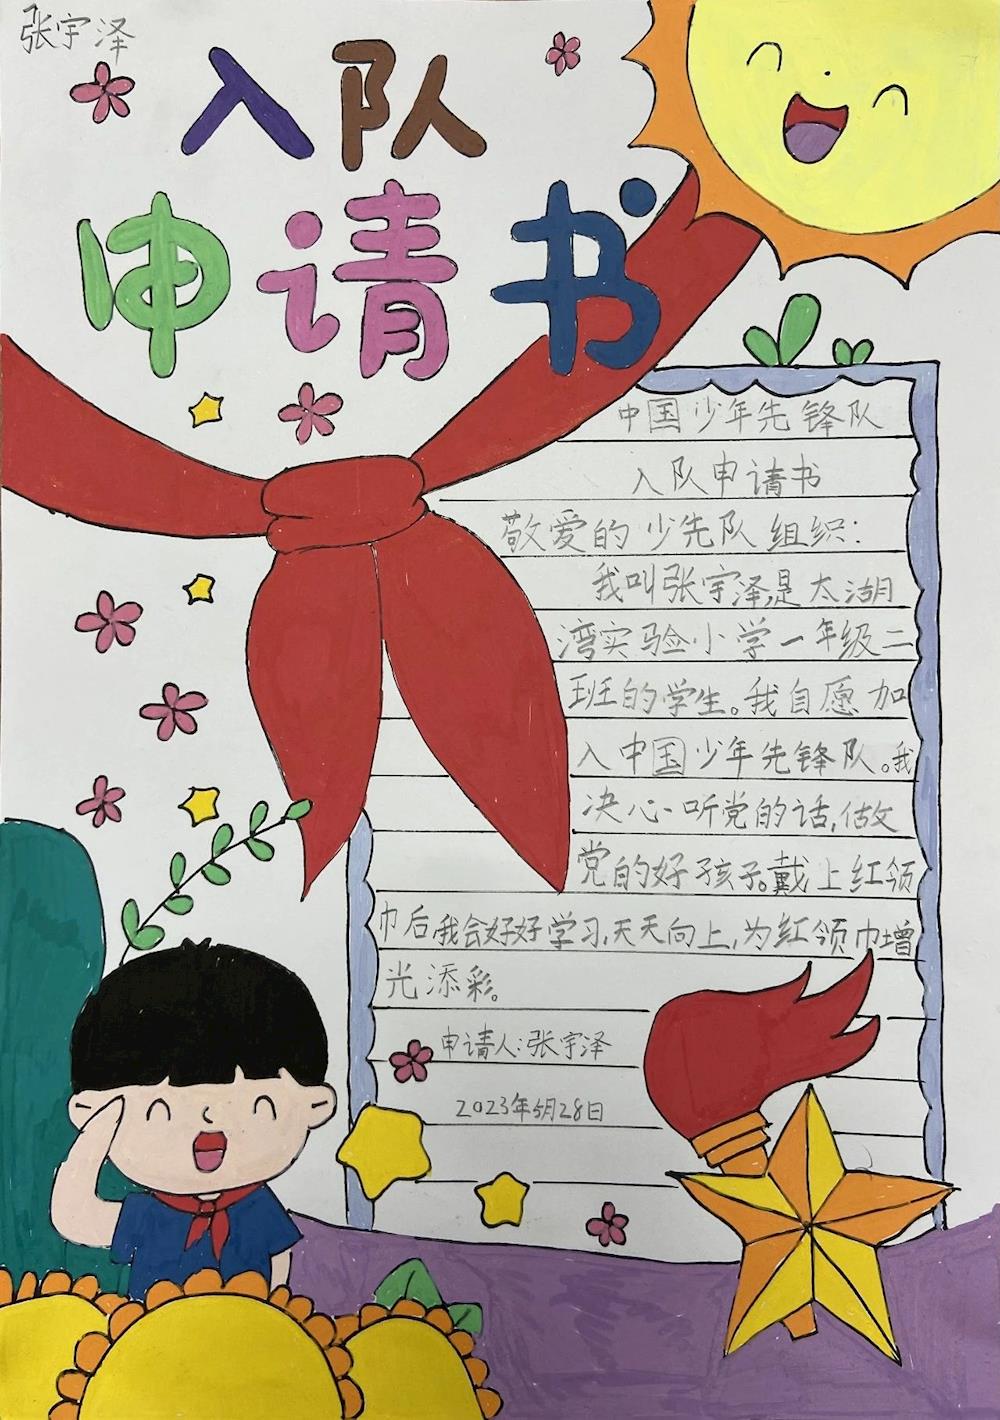 张宇泽
入队
申请书
中国少年先锋队
入队申请书
敬爱的少先队组织：
我叫张宇泽，是太湖
湾实验小学一年级二
班的学生。我自愿加
入中国少年先锋队。我
决心听党的话，做
党的好孩子。戴上红领
巾后，我会好好学习，天天向上，为红领巾增
光添彩。
申请人：张宇泽
2023年5月28日